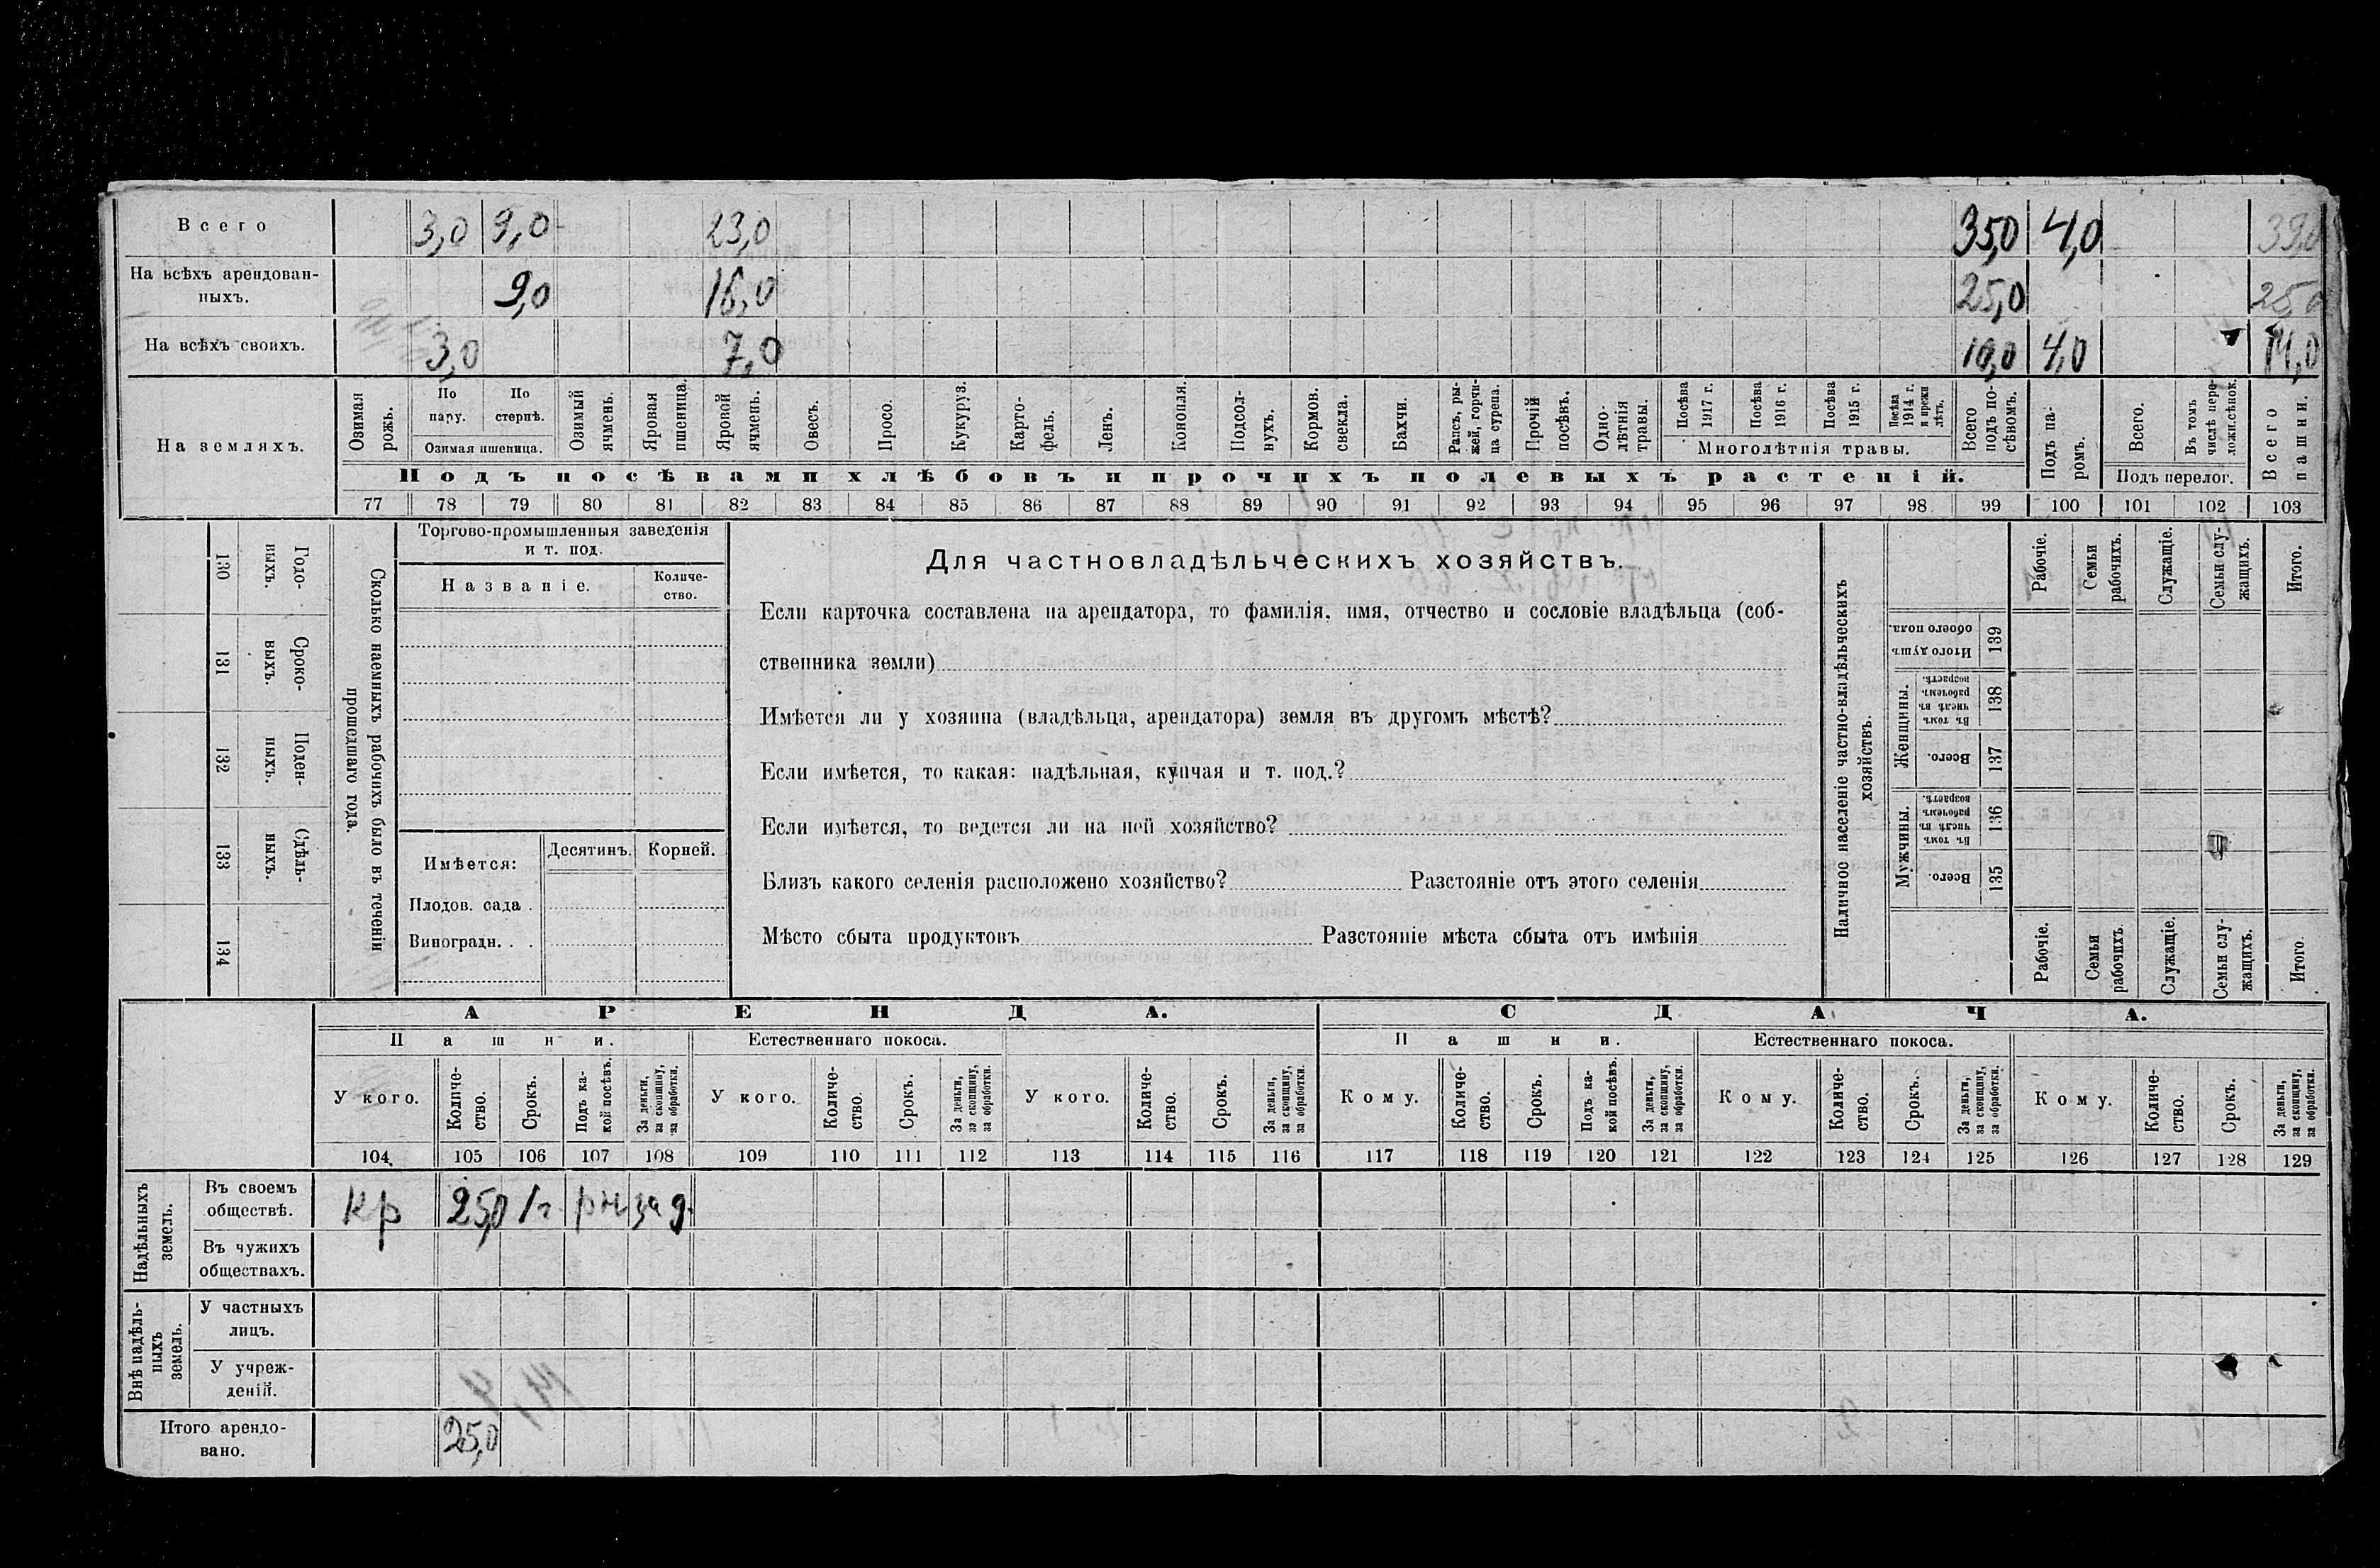 Всего 3,0 9,0 23,0 35,0 4,0 39,0
На всѣхъ арендован-
ныхъ. 9,0 16,0 25,0 25,0
На всѣхъ своихъ. 3,0 7,0 10,0 4,0 14,0
На земляхъ.
Озимая рожь.
По пару.
По стернѣ.
Озимая пшеница.
Озимый ячмень.
Яровая пшеница.
Яровой ячмень.
Овесъ.
Просо.
Кукуруз.
Карто-
фель.
Ленъ.
Конопля.
Подсол-
нухъ.
Кормов. свекла.
Бахчи.
Рапсъ, ры-
жей, горчи-
ца сурепа.
Прочій посѣвъ.
Одно-
лѣтнія травы.
Посѣва 1917 г.
Посѣва 1916 г.
Посѣва 1915 г.
Посѣва 1914 г. и прежн лѣтъ.
Многолѣтнія травы.
Всего подъ по-
сѣвомъ.
Подъ па-
ромъ.
Всего.
Въ томъ числѣ пере-
ложн.сѣнок.
Подъ перелог.
Всего пашни.
Подъ посѣвами хлѣбовъ и прочихъ полевыхъ растеній.
77 78 79 80 81 82 83 84 85 86 87 88 89 90 91 92 93 94 95 96 97 98 99 100 101 102 103
130 Годо-
выхъ.
131 Сроко-
выхъ.
132 Поден-
ныхъ.
133 Сдѣль-
ныхъ.
134
Сколько наемныхъ рабочихъ было въ теченіи
прошедшаго года.
Торгово-промышленныя заведенія
и т. под.
Названіе.
Количе-
ство.
Имѣется: Десятинъ. Корней.
Плодов. сада .
Виноградн. . .
Для частновладѣльческихъ хозяйствъ.
Если карточка составлена на арендатора, то фамилія, имя, отчество и сословіе владѣльца (соб-
ственника земли)
Имѣется ли у хозяина (владѣльца, арендатора) земля въ другомъ мѣстѣ?
Если имѣется, то какая: надѣльная, купчая и т. под.?
Если имѣется, то ведется ли на ней хозяйство?
Близъ какого селенія расположено хозяйство? Разстояніе отъ этого селенія
Мѣсто сбыта продуктовъ Разстояніе мѣста сбыта отъ имѣнія
Наличное населеніе частно-владѣльческихъ
хозяйствъ.
Рабочіе.
Семьи рабочихъ.
Служащіе.
Семьи слу-
жащихъ.
Итого.
Итого душъ обоего пола. 139
Женщины.
Въ томъ числѣ въ рабочемъ возрастѣ. 138
Всего. 137
Мужчины.
Въ томъ числѣ въ рабочемъ возрастѣ. 136
Всего. 135
Рабочіе.
Семьи рабочихъ.
Служащіе.
Семьи слу-
жащихъ.
Итого.
АРЕНДА. СДАЧА.
Пашни. Естественнаго покоса. Пашни. Естественнаго покоса.
У кого.
Количе-
ство.
Срокъ.
Подъ ка-
кой посѣвъ.
За деньги,
за скопщину,
за обработки.
У кого.
Количе-
ство.
Срокъ.
За деньги,
за скопщину,
за обработки.
У кого.
Количе-
ство.
Срокъ.
За деньги,
за скопщину,
за обработки.
Кому.
Количе-
ство.
Срокъ.
Подъ ка-
кой посѣвъ.
За деньги,
за скопщину,
за обработки.
Кому.
Количе-
ство.
Срокъ.
За деньги,
за скопщину,
за обработки.
Кому.
Количе-
ство.
Срокъ.
За деньги,
за скопщину,
за обработки.
104 105 106 107 108 109 110 111 112 113 114 115 116 117 118 119 120 121 122 123 124 125 126 127 128 129
Надѣльныхъ
земель.
Въ своемъ
обществѣ. кр 25,0 1г. за д.
Въ чужихъ
обществахъ.
Внѣ надѣль-
ныхъ
земель.
У частныхъ
лицъ.
У учреж-
деній.
Итого арендо-
вано. 25,0